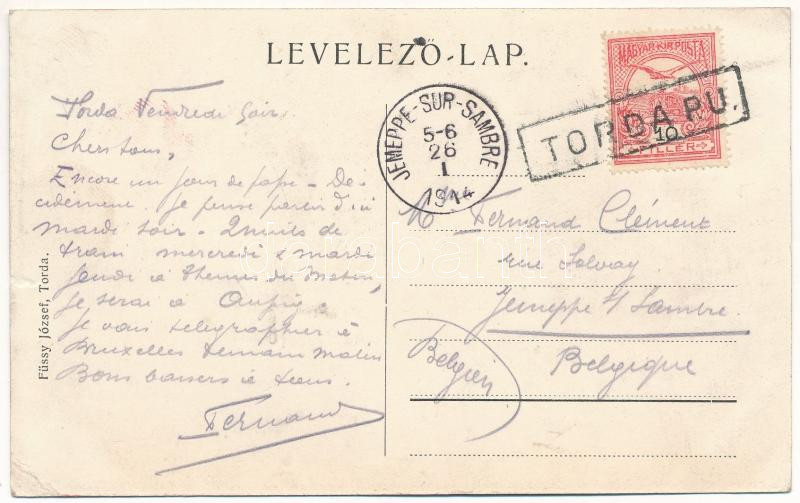 LEVELEZŐ-LAP.
MAGYAR KIR. POSTA
10
FILLÉR
TORDA PU.
JEMEPPE-SUR-SAMBRE
5-6
26
I
1914
Torda Vendredi soir
Chers tous,
Encore un jour de passé - De-
cidement. Je pense partir d'ici
mardi soir - 2 nuits de
tram mercredi & mardi
jeudi à du Matin,
je serai à
Je vais telegraphier à
Bruxelles demain matin
Bons baisers à tous.
Fernand
Mr Fernand Clément
rue Solvay
Jemeppe s/ Sambre
Belgique
Belgien
Füssy József, Torda.